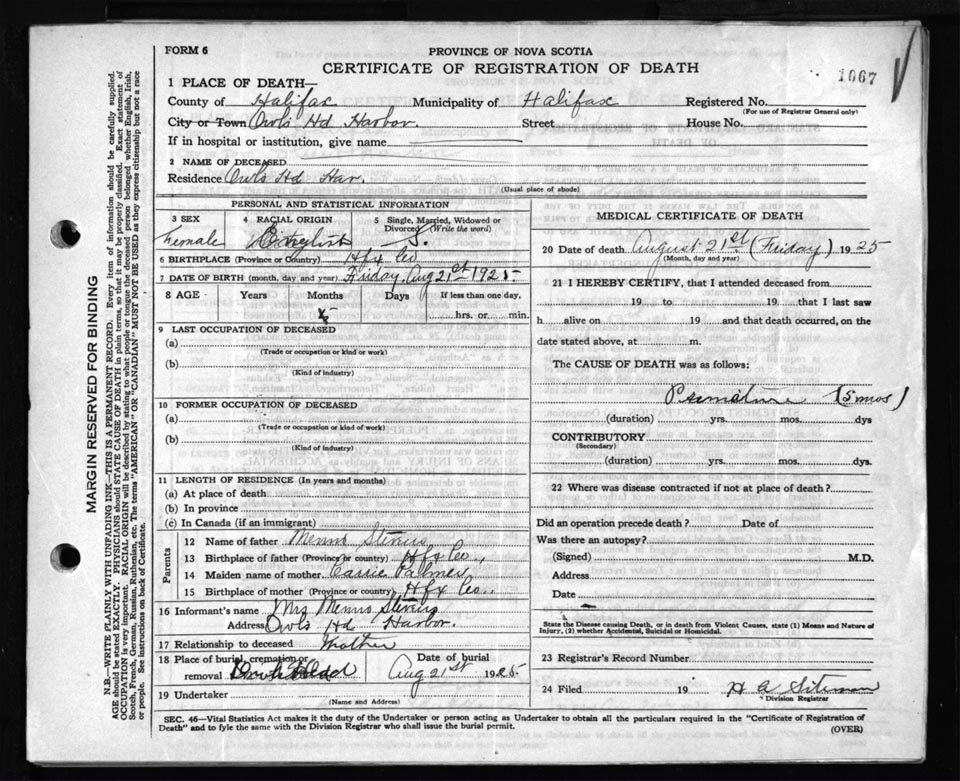 FORM 6
PROVINCE OF NOVA SCOTIA
CERTIFICATE OF REGISTRATION OF DEATH
1067
1 PLACE OF DEATH—
County of Halifax Municipality of Halifax Registered No.
(For use of Registrar General only)
City or Town Owls Hd Harbor. Street House No.
If in hospital or institution, give name
2 NAME OF DECEASED
Residence Owls Hd Har.
(Usual place of abode)
PERSONAL AND STATISTICAL INFORMATION
3 SEX 4 RACIAL ORIGIN 5 Single, Married, Widowed or Divorced (Write the word)
Female English S.
6 BIRTHPLACE (Province or Country) Hfx Co
7 DATE OF BIRTH (month, day and year) Friday, Aug 21st 1925
8 AGE Years Months Days If less than one day,
5 hrs. or min.
9 LAST OCCUPATION OF DECEASED
(a)
(Trade or occupation or kind or work)
(b)
(Kind of industry)
10 FORMER OCCUPATION OF DECEASED
(a)
(Trade or occupation or kind of work)
(b)
(Kind of industry)
11 LENGTH OF RESIDENCE (In years and months)
(a) At place of death
(b) In province
(c) In Canada (if an immigrant)
Parents
12 Name of father Menno Stevens
13 Birthplace of father (Province or country) Hfx Co.,
14 Maiden name of mother Carrie Palmer
15 Birthplace of mother (Province or country) Hfx Co..
16 Informant's name Mrs Menno Stevens
Address Owls Hd Harbor.
17 Relationship to deceased Mother
18 Place of burial, cremation or removal Date of burial
Aug 21st 1925.
19 Undertaker
(Name and Address)
MEDICAL CERTIFICATE OF DEATH
20 Date of death August 21st (Friday) 1925
(Month, day and year)
21 I HEREBY CERTIFY, that I attended deceased from
19 to 19 that I last saw
h alive on 19 and that death occurred, on the
date stated above, at m.
The CAUSE OF DEATH was as follows:
Premature (5 mos)
(duration) yrs. mos. dys
CONTRIBUTORY
(Secondary)
(duration) yrs. mos. dys.
22 Where was disease contracted if not at place of death?
Did an operation precede death? Date of
Was there an autopsy?
(Signed) M.D.
Address
Date
State the Disease causing Death, or in death from Violent Causes, state (1) Means and Nature of
Injury, (2) whether Accidental, Suicidal or Homicidal.
23 Registrar's Record Number
24 Filed 19 H A Siteman
Division Registrar
SEC. 46—Vital Statistics Act makes it the duty of the Undertaker or person acting as Undertaker to obtain all the particulars required in the "Certificate of Registration of
Death" and to fyle the same with the Division Registrar who shall issue the burial permit.
(OVER)
MARGIN RESERVED FOR BINDING
N.B.—WRITE PLAINLY WITH UNFADING INK—THIS IS A PERMANENT RECORD. Every item of information should be carefully supplied.
AGE should be stated EXACTLY. PHYSICIANS should STATE CAUSE OF DEATH in plain terms, so that it may be properly classified. Exact statement of
OCCUPATION is very important. RACIAL ORIGIN will be described by stating to what people or tongue the deceased person belonged whether English, Irish,
Scotch, French, German, Russian, Ruthenian, etc. The terms "AMERICAN" OR "CANADIAN" MUST NOT BE USED as they express citizenship but not a race
or people. See instructions on back of Certificate.